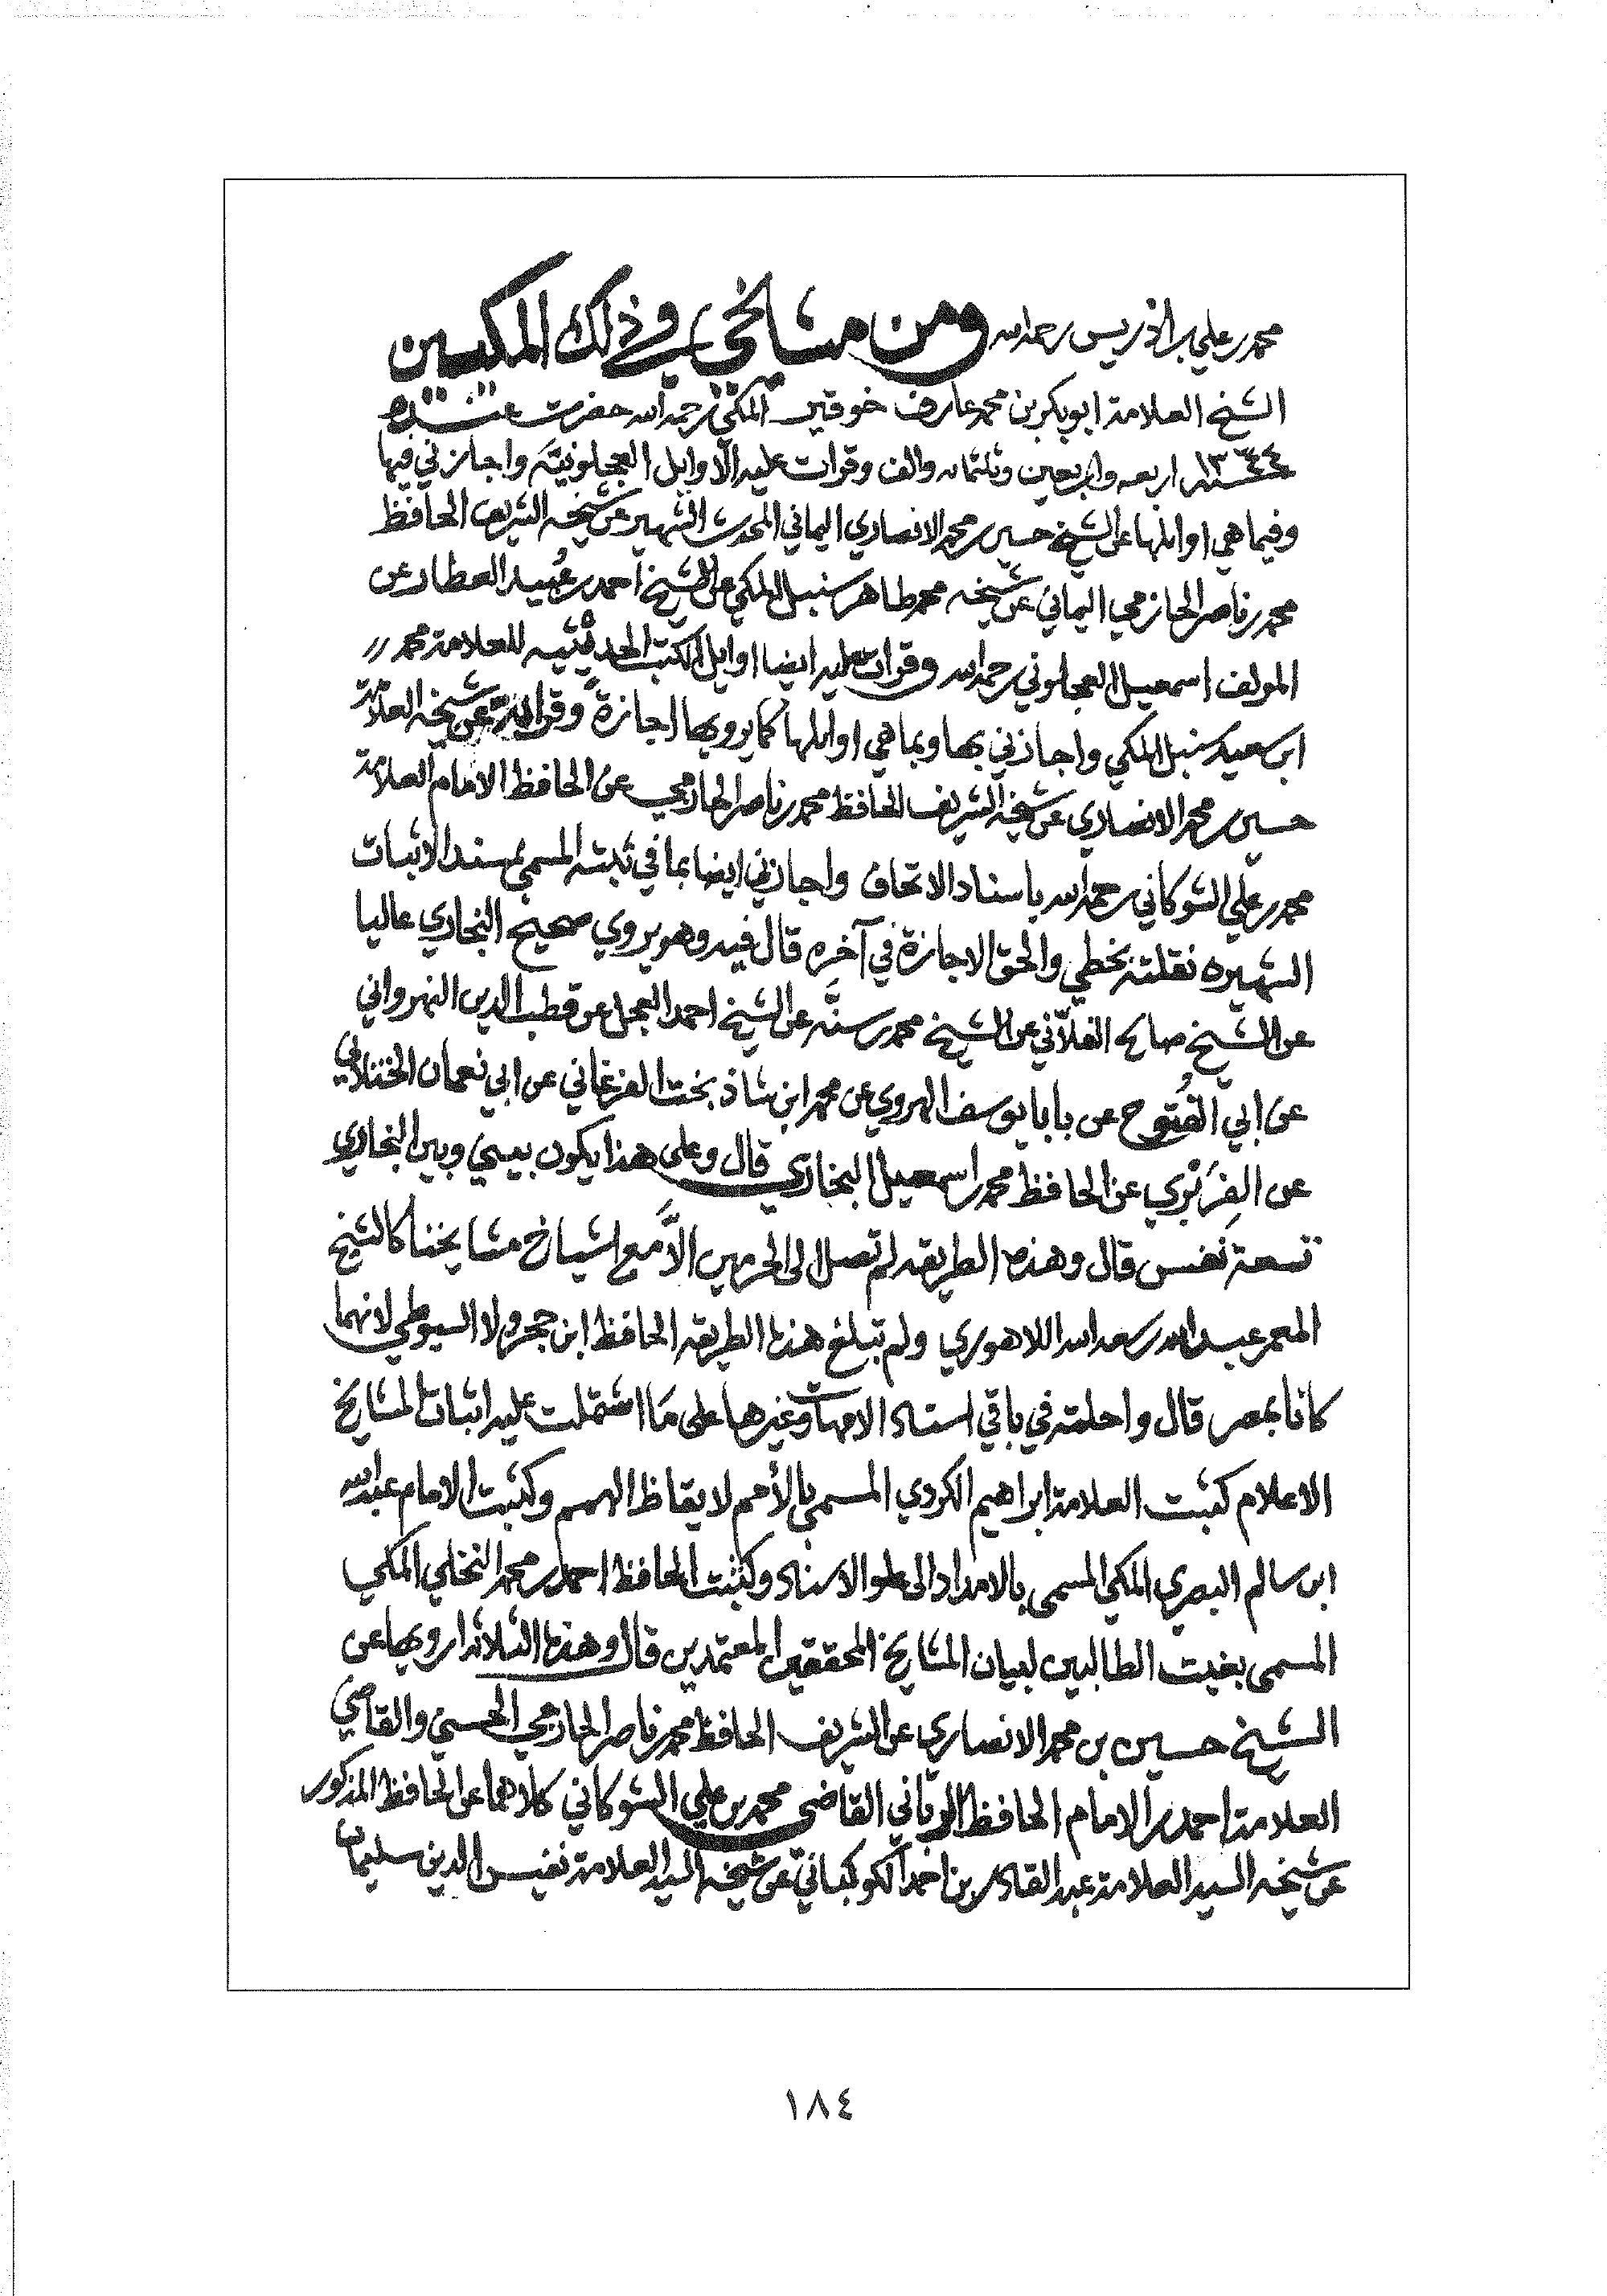 محمد بن علي بن ادريس رحمه الله ومن مشايخي في ذلك المكيين
الشيخ العلامة ابوبكر بن محمد عارف خوقير المكي رحمه الله حضرت عنده
سنة ١٣٤٤ اربعه واربعين وثلثمائه والف وقرات عليه الاوايل العجلونيَّه واجازني فيها
وفيما هي اوايلها عن الشيخ حسين بن محمد الانصاري اليماني المحدث الشهير عن شيخه الشريف الحافظ
محمد بن ناصر الحازمي اليماني عن شيخه محمد طاهر سنبل المكي عن الشيخ احمد بن عُبيد العطار عن
المولف اسمعيل العجلوني رحمه الله وقرات عليه ايضا اوايل الكتب الحديثيه للعلامة محمد
ابن سعيد سنبل المكي واجازني بها وبما هي اوايلها كما يرويها اجازةً وقراءة عن شيخه العلامة
حسين بن محمد الانصاري عن شيخه الشريف الحافظ محمد بن ناصر الحازمي عن الحافظ الامام العلامة
محمد بن علي الشوكاني رحمه الله باسناد الاتحاف واجازني ايضا بما في ثبته المسمى بمسند الاثبات
الشهيره نقلته بخطي والحق الاجازة في آخره قال فيه وهو يروي صحيح البخاري عاليا
عن الشيخ صالح الفلّاني عن الشيخ محمد بن سنَّه عن الشيخ احمد العجل عن قطب الدين النهرواني
عن ابي الفُتوح عن بابا يوسف الهروي عن محمد ابن شاذ بخت الفرغاني عن ابي نعمان الختلاني
عن الفِرَبْري عن الحافظ محمد اسمعيل البخاري قال وعلى هذا يكون بيني وبين البخاري
تسعة نفس قال وهذه الطريقه لم تصل الى الحرمين الاَّ مع اشياخ مشايخنا كالشيخ
المعمر عبد الله بن سعد الله اللاهوري ولم تبلغ هذه الطريقه الحافظ ابن حجر ولا السيوطي لانهما
كانا بمصر قال واحلته في باقي اسناد الامهات وغيرها على ما اشتملت عليه اثبات المشايخ
الاعلام كثبت العلامة ابراهيم الكردي المسمى بالأمم لايقاظ الهمم وكثبت الامام عبد الله
ابن سالم البصري المكي المسمى بالامداد الى علو الاسناد وكثبت الحافظ احمد بن محمد النخلي المكي
المسمى بغيت الطالبين لبيان المشايخ المحققين المعتمدين قال وهذه الثلاثه ارويها عن
الشيخ حسين بن محمد الانصاري عن الشريف الحافظ محمد بن ناصر الحازمي الحسني والقاضي
العلامة احمد بن الامام الحافظ الرباني القاضي محمد بن علي الشوكاني كلاهما عن الحافظ المذكور
عن شيخه السيد العلامة عبد القادر بن احمد الكوكباني عن شيخه السيد العلامة نفيس الدين سليمان
١٨٤